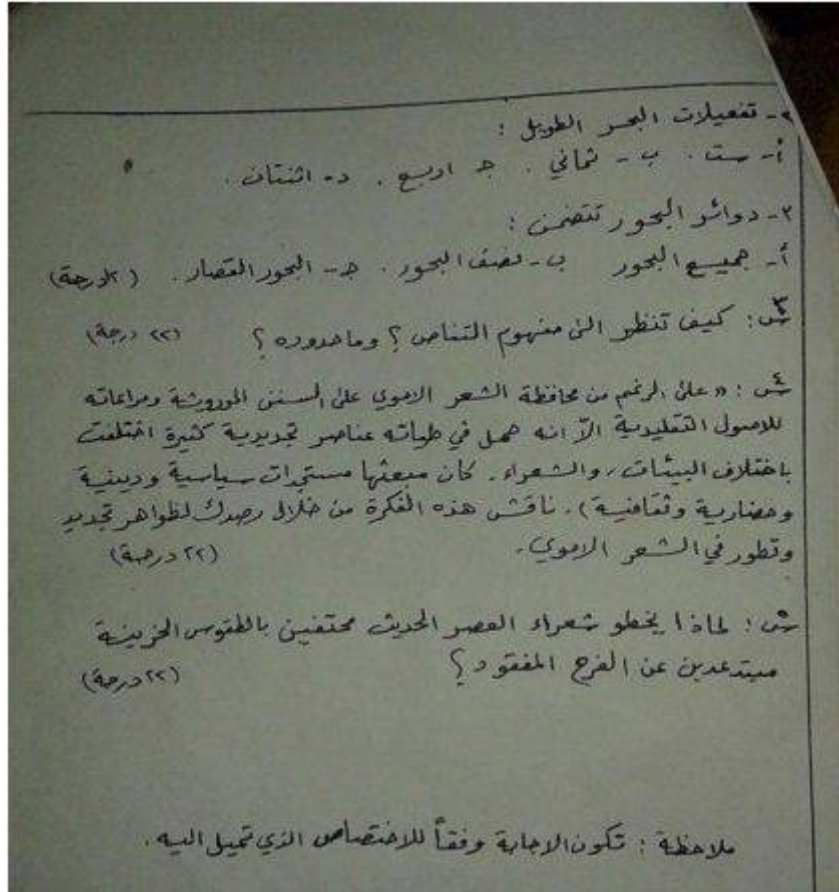 ٢- تفعيلات البحر الطويل :
أ- ست . ب - ثماني . جـ اربع . د- اثنتان .
٣- دوائر البحور تتضمن :
أ- جميع البحور ب - نصف البحور . جـ - البحور القصار . درجة)
س٣: كيف تنظر الى مفهوم التناص ؟ وما حدوده ؟ (٢٢ درجة)
س٤ : " على الرغم من محافظة الشعر الاموي على السنن الموروثة ومراعاته
للاصول التقليدية الاّ انه حمل في طياته عناصر تجديدية كثيرة اختلفت
باختلاف البيئات ، والشعراء . كان مبعثها مستجدات سياسية ودينية
وحضارية وثقافية ) . ناقش هذه الفكرة من خلال رصدك لظواهر تجديد
وتطور في الشعر الاموي . (٢٢ درجة)
س٥ : لماذا يخطو شعراء العصر الحديث محتفين بالطقوس الحزينة
مبتدعين عن الفرح المفقود ؟ (٢٢ درجة)
ملاحظة : تكون الاجابة وفقاً للاختصاص الذي تميل اليه .